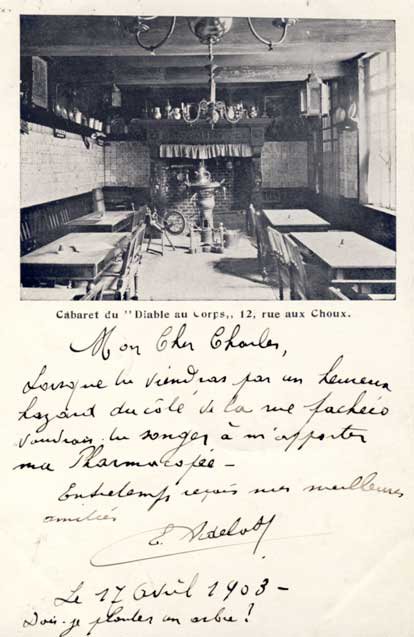 Cabaret du "Diable au Corps,, 12, rue aux Choux.
Mon Cher Charles,
Lorsque tu viendras par un heureux
hazard du côté de la rue pachéco
voudrais-tu songer à m'apporter
ma Pharmacopée –
Entretemps reçois mes meilleures
amitiés
E.
Le 17 avril 1903 –
Dois-je planter un arbre?